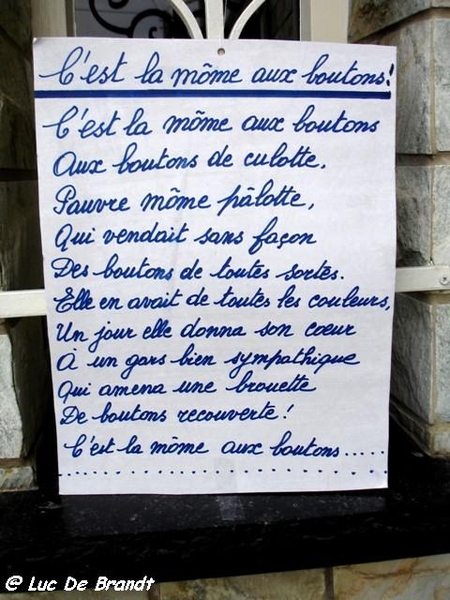 C'est la môme aux boutons!
C'est la môme aux boutons
Aux boutons de culotte.
Pauvre môme pâlotte,
Qui vendait sans façon
Des boutons de toutes sortes.
Elle en avait de toutes les couleurs,
Un jour elle donna son cœur
À un gars bien sympathique
Qui amena une brouette
De boutons recouverte!
C'est la môme aux boutons.....
@ Luc De Brandt